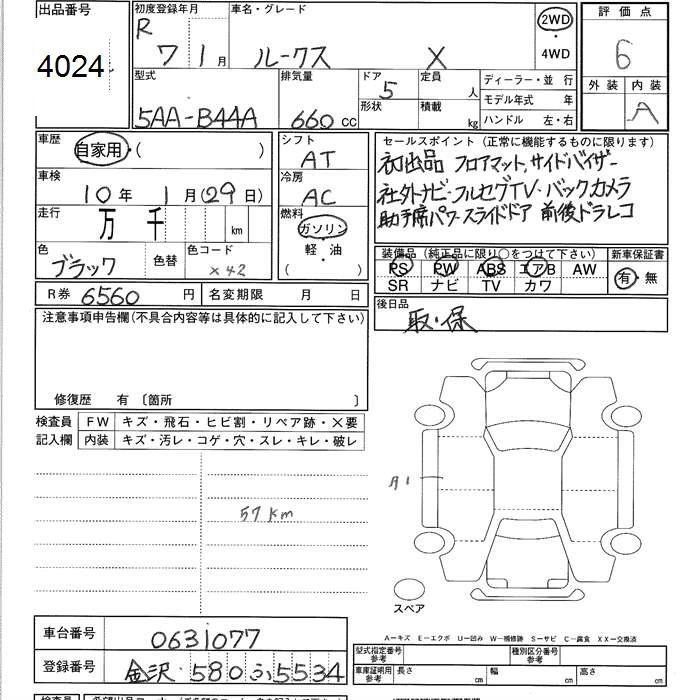 出品番号
4024
初度登録年月
R 7 1 月
車名・グレード
ルークス X
2WD
4WD
評価点
6
外装 内装
A
型式
5AA-B44A
排気量
660 CC
ドア
5
形状
定員
人
積載
kg
ディーラー・並 行
モデル年式 年
ハンドル 左・右
車歴
自家用・( )
車検
10 年 1 月 (29 日)
走行
万 千 km
色
ブラック
色替
色コード
X42
シフト
AT
冷房
AC
燃料
ガソリン
軽・油
( )
セールスポイント (正常に機能するものに限ります)
初出品 フロアマット,サイドバイザー
社外ナビ・フルセグTV・バックカメラ
助手席パワースライドドア 前後ドラレコ
装備品 (純正品に限り○をつけて下さい)
PS PW ABS エアB AW
SR ナビ TV カワ
新車保証書
有・無
R券 6560 円
名変期限 月 日
後日品
取・保
注意事項申告欄(不具合内容等は具体的に記入して下さい)
修復歴 有 〔箇所 〕
検査員
記入欄
FW キズ・飛石・ヒビ割・リペア跡・X要
内装 キズ・汚レ・コゲ・穴・スレ・キレ・破レ
57km
A1
スペア
車台番号
0631077
登録番号
金沢 580 ふ 5534
A-キズ E-エクボ U-凹み W-補修跡 S-サビ C-腐食 XX-交換済
型式指定番号
参考
種別区分番号
参考
車庫証明用
参考
長さ cm
幅 cm
高さ cm